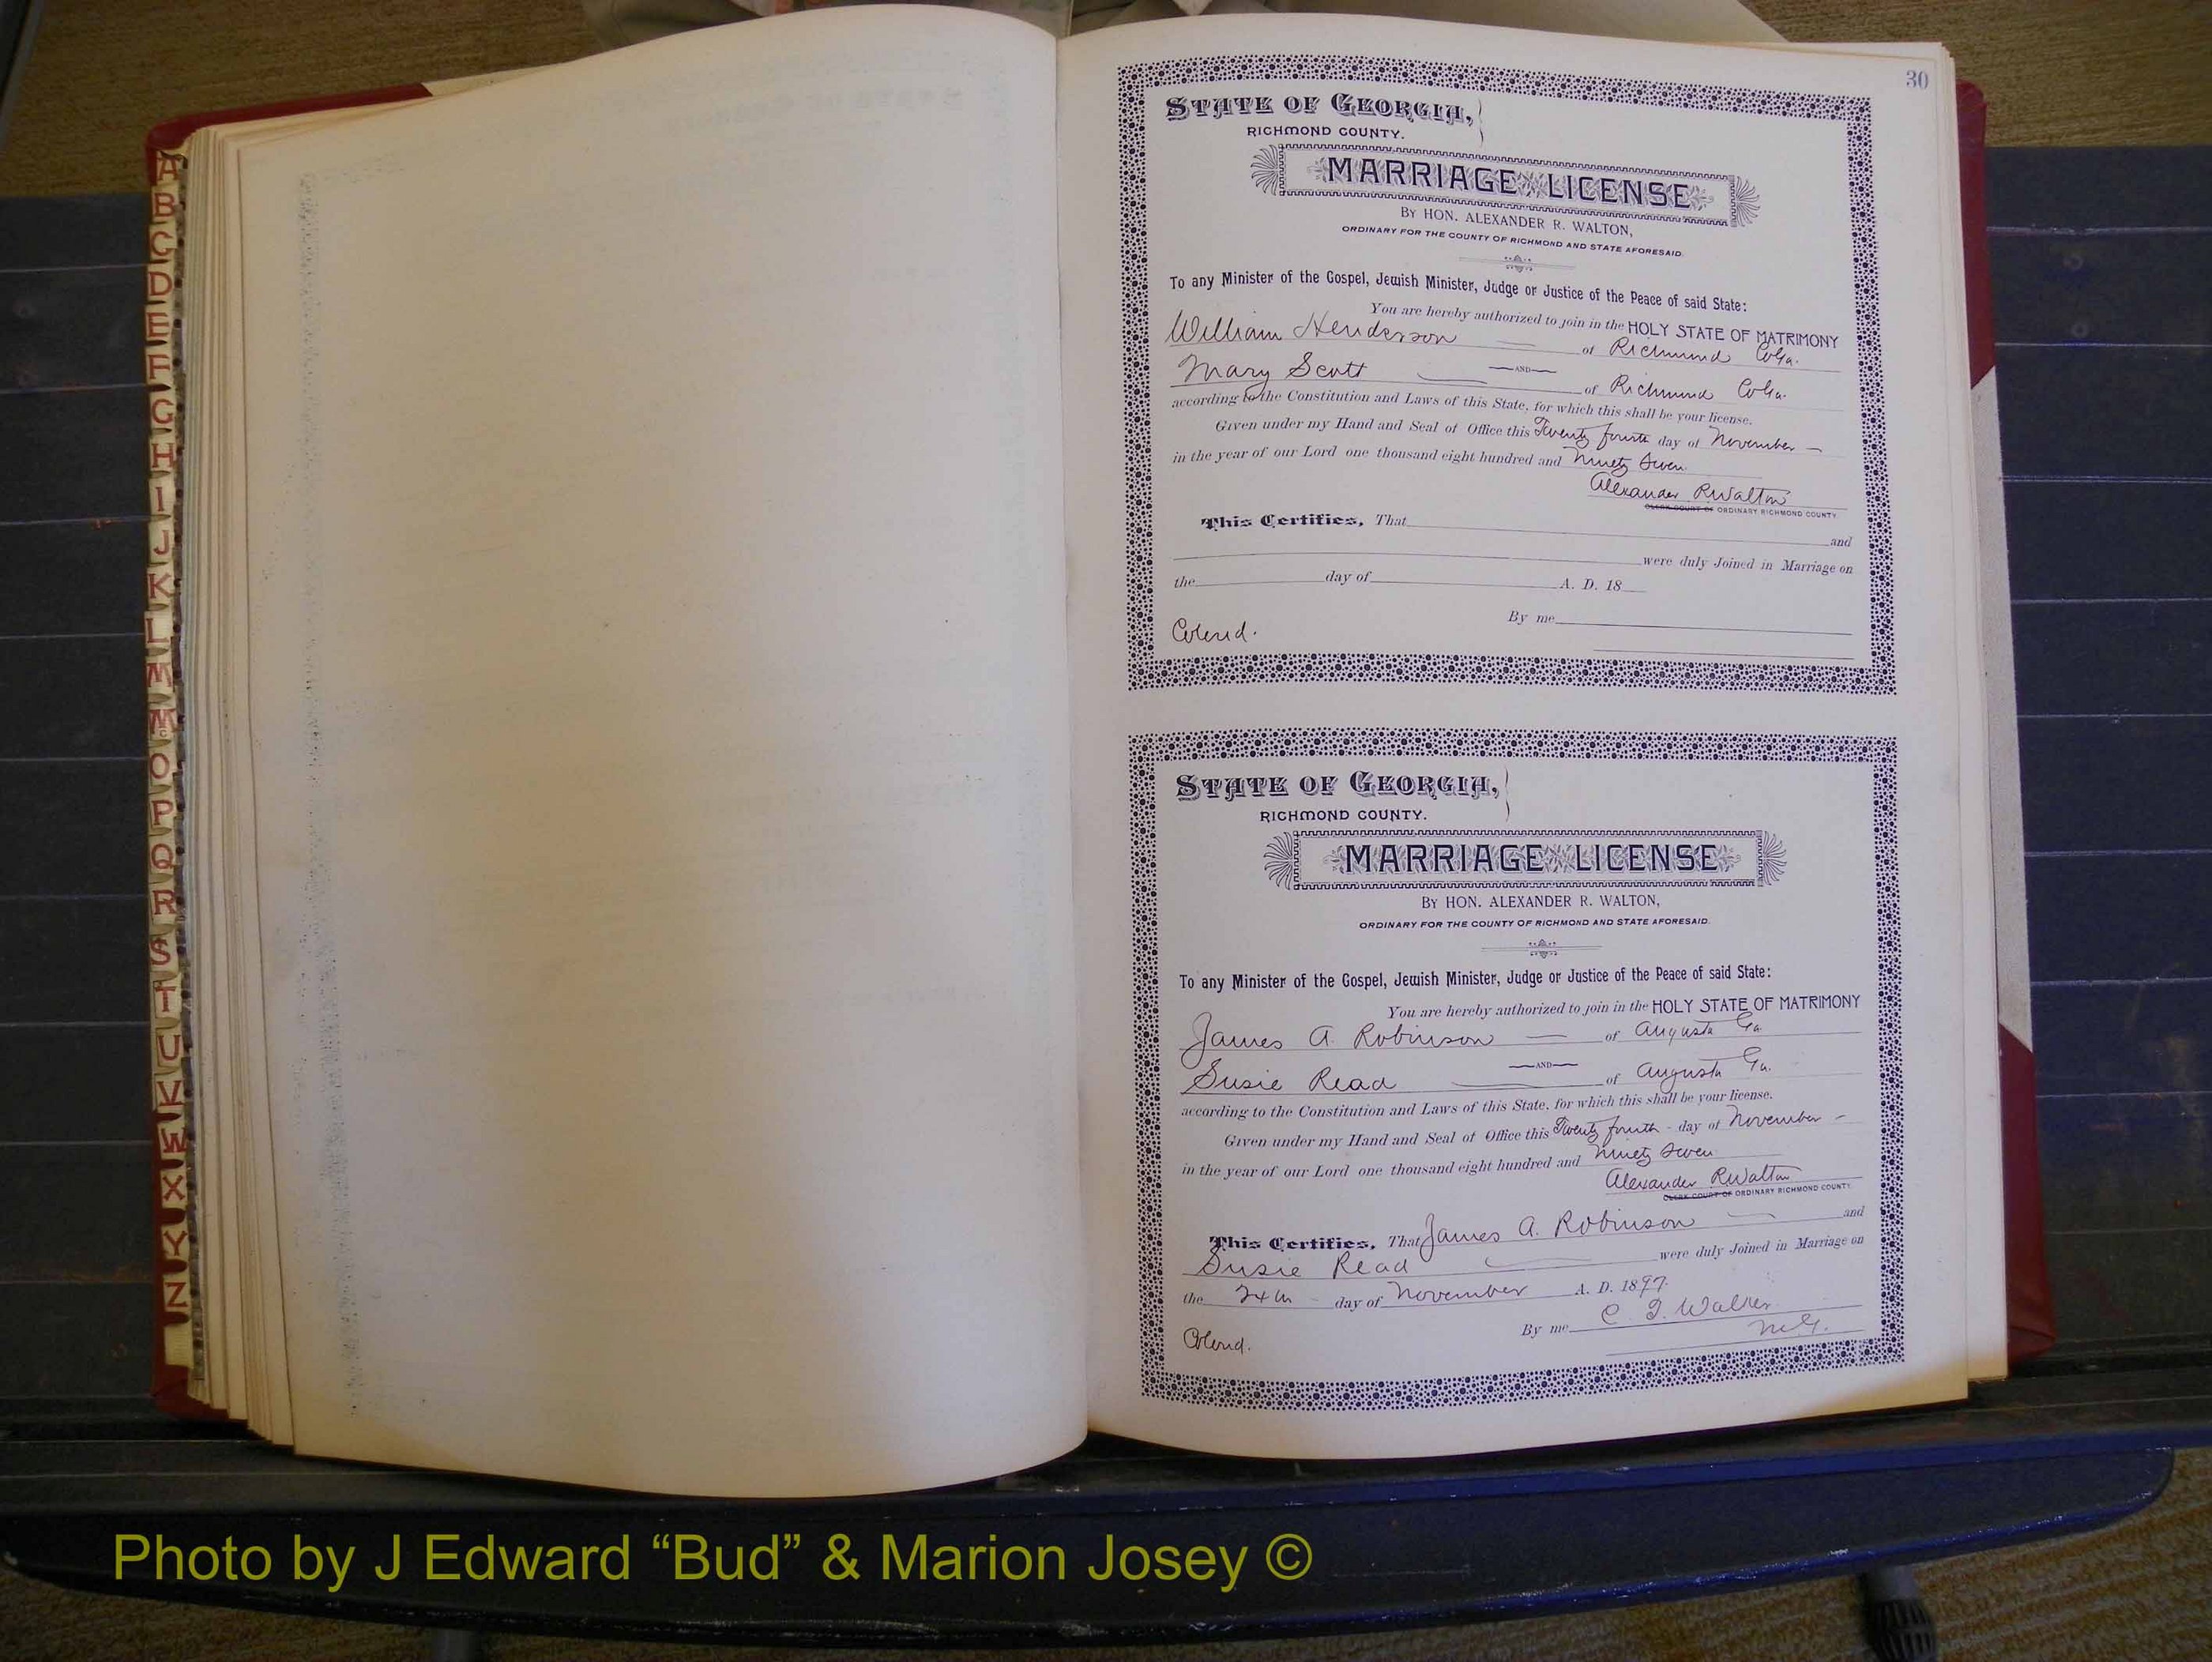 A
B
C
D
E
F
G
H
I
J
K
L
M
Mc
O
P
Q
R
S
T
U
V
W
X
Y
Z
30
STATE OF GEORGIA,
RICHMOND COUNTY.
MARRIAGE LICENSE
BY HON. ALEXANDER R. WALTON,
ORDINARY FOR THE COUNTY OF RICHMOND AND STATE AFORESAID.
To any Minister of the Gospel, Jewish Minister, Judge or Justice of the Peace of said State:
You are hereby authorized to join in the HOLY STATE OF MATRIMONY
William Henderson — of Richmond Co Ga.
—AND—
Mary Scott — of Richmond Co Ga.
according to the Constitution and Laws of this State, for which this shall be your license.
Given under my Hand and Seal of Office this Twenty fourth day of November —
in the year of our Lord one thousand eight hundred and ninety seven
Alexander R Walton
CLERK COURT OF ORDINARY RICHMOND COUNTY
This Certifies, That and
were duly Joined in Marriage on
the day of A. D. 18
By me
Colored.
STATE OF GEORGIA,
RICHMOND COUNTY.
MARRIAGE LICENSE
BY HON. ALEXANDER R. WALTON,
ORDINARY FOR THE COUNTY OF RICHMOND AND STATE AFORESAID.
To any Minister of the Gospel, Jewish Minister, Judge or Justice of the Peace of said State:
You are hereby authorized to join in the HOLY STATE OF MATRIMONY
James A. Robinson — of Augusta Ga
—AND—
Susie Read — of Augusta Ga.
according to the Constitution and Laws of this State, for which this shall be your license.
Given under my Hand and Seal of Office this Twenty fourth - day of November -
in the year of our Lord one thousand eight hundred and ninety seven
Alexander R Walton
CLERK COURT OF ORDINARY RICHMOND COUNTY.
This Certifies, That James A. Robinson — and
Susie Read — were duly Joined in Marriage on
the 24th - day of November A. D. 1897.
By me C. T. Walker
M.G.
Colored.
Photo by J Edward “Bud” & Marion Josey ©